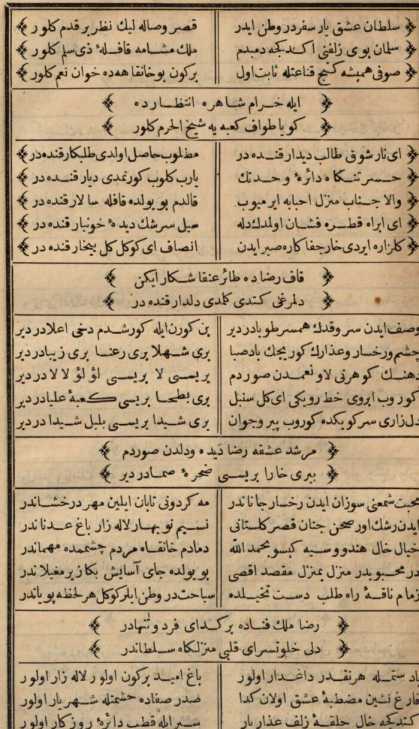 سلطان عشق يار سفر در وطن ايدر قصر وصاله ليك نظر بر قدم كلور
سلمان بوی زلفنی آكدقجه دمبدم ملك مشامه قافلۀ ذی سلم كلور
صوفی هميشه كنج قناعتله ثابت اول بركون بو خانقاهده خوان نعم كلور
ايله خرام شاهره انتظارده
كويا طواف كعبه يه شيخ الحرم كلور
ای نار شوق طالب ديدار قنده در مطلوب حاصل اولدی طلبكار قنده در
حسرتكاه دائرۀ وحدتك يارب كلوب كورنمدی ديار قنده در
والا جناب منزل احبابه ايرميوب قالدم بو يولده قافله سالار قنده در
ای ابراه قطره فشان اولمدك دله سيل سرشك ديدۀ خونبار قنده در
كلزاره ايردی خار جفا كاره صبر ايدن انصاف ای كوكل كل بيخار قنده در
قاف رضاده طائر عنقا شكار ايكن
دلمرغی كتدی كلمدی دلدار قنده در
وصف ايدن سرو قدك همسر طوبادر دير بن كورن ايله كورشدم دخی اعلادر دير
چشم و رخسار و عذارك كوريجك باد صبا بری شهلا بری رعنا بری زيبادر دير
دهنك كوهرنی لاو نعمدن صوردم بريسی لا بريسی لؤلؤ لالادر دير
كوروب ابروی خط رويكی ای كل سنبل بری بطحا بريسی كعبۀ عليادر دير
دلزاری سركويكده كوروب پير و جوان بری شيدا بريسی بلبل شيدادر دير
مرشد عشقه رضا ديده و دلدن صوردم
بيری خارا بريسی صخرۀ صمادر دير
محبت شمعنی سوزان ايدن رخسار جاناندر مه كردونی تابان ايلين مهر درخشاندر
ايدن رشك اور صحن جنان قصر كلستانی نسيم نو بهار لاله زار باغ عدناندر
خيال خال هندو و سيه كيسو بحمد الله دمادم خانقاه مردم چشممده مهماندر
در محبوبدر منزل بمنزل مقصد اقصی بو يولده جای آسايش بكا زير مغيلاندر
زمام ناقۀ راه طلب دست تخيلده سياحت در وطن ايلر كوكل هر لحظه پوياندر
رضا ملك فناده بر كدای فرد و تنهادر
دلی خلوتسرای قلبی منزلكاه سلطاندر
ياد ستمله هر نقدر داغدار اولور باغ اميد بركون اولور لاله زار اولور
فارغ نشين مصطبۀ عشق اولان كدا صدر صفاده حشمتله شهريار اولور
كندكجه خال حلقۀ زلف عذار يار سير ايله قطب دائرۀ روزكار اولور